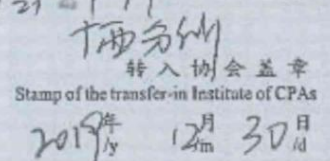 转入协会盖章
Stamp of the transfer-in Institute of CPAs
2019年/y 12月/m 30日/d